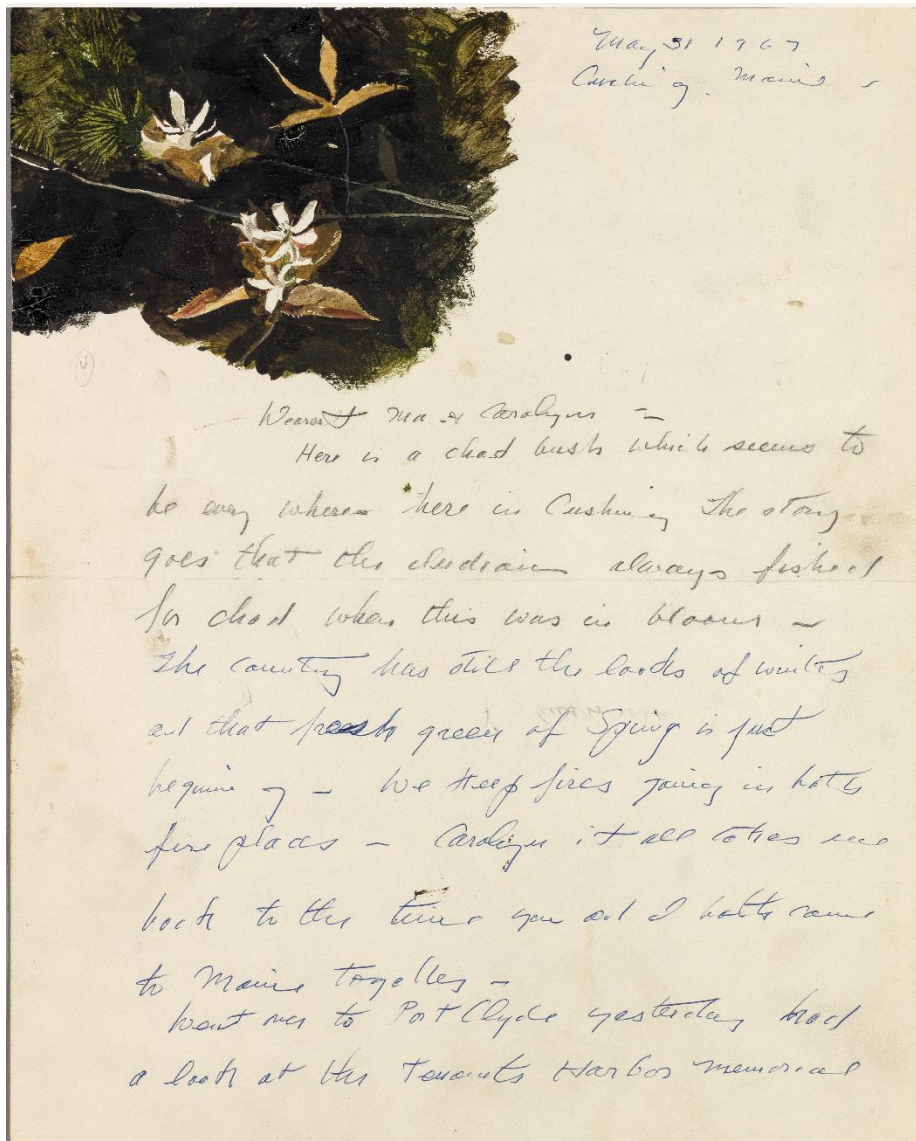 May 31 1967
Cushing. Maine
4
Dearest Ma & Carolyn –
Here is a chad bush which seems to
be every where here in Cushing The story
goes that the Indians always fished
for chad when this was in bloom –
The country has still the looks of winter
and that fresh green of Spring is just
begining – We keep fires going in both
fire places – Carolyn it all takes me
back to the time you and I both came
to Maine together –
Went over to Port Clyde yesterday had
a look at the Tenants Harbor memorial